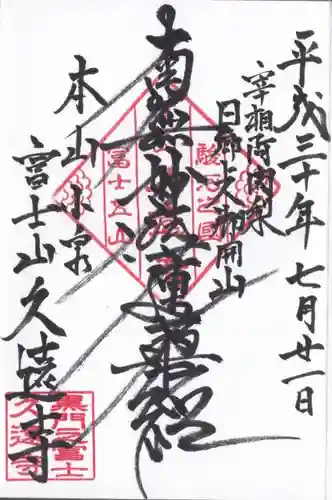 平成三十年七月廿一日
宰相阿闍梨
日郷上人御開山
南無妙法蓮華経
駿河之國
富士五山
本山 小泉
富士山久遠寺
黒門之富士
久遠寺